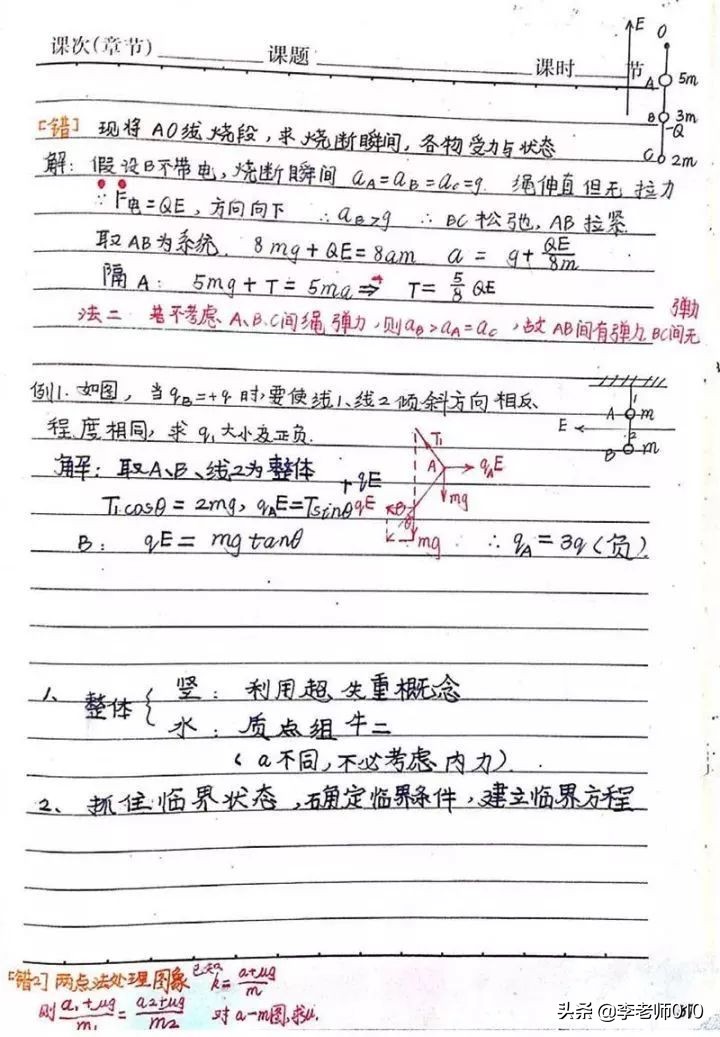 课次(章节)________课题____________课时____节
E O
A 5m
B 3m
-Q
C 2m
[错] 现将AO线烧段,求烧断瞬间,各物受力与状态
解: 假设B不带电,烧断瞬间 aA=aB=aC=g. 绳伸直但无拉力
∵ F电=QE,方向向下 ∴aB>g ∴BC松弛,AB拉紧
取AB为系统. 8mg+QE=8am a = g+QE/8m
隔A: 5mg+T=5ma⇒ T=5/8 QE
法二 若不考虑A、B、C间绳弹力,则aB>aA=aC,故AB间有弹力BC间无
弹力
例1.如图, 当qB=+q时,要使线1、线2倾斜方向相反
程度相同,求q,大小及正负.
1
A m
E 2
B m
解: 取A、B、线2为整体
T1cosθ=2mg, qAE=Tsinθ+qE
B: qE=mgtanθ ∴qA=3q(负)
T1
A qAE
mg
qE B
θ
mg
1、 整体 { 竖: 利用超失重概念
水: 质点组牛二
(a不同,不必考虑内力).
2、 抓住临界状态,确定临界条件,建立临界方程
[错2] 两点法处理图象 k=a+μg/m
则 a1+μg/m1 = a2+μg/m2 对a-m图,求μ.
头条 @李老师010